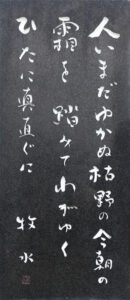 人いまだゆかぬ枯野の今朝の
霜を踏みてわがゆく
ひたに真直ぐに
牧水